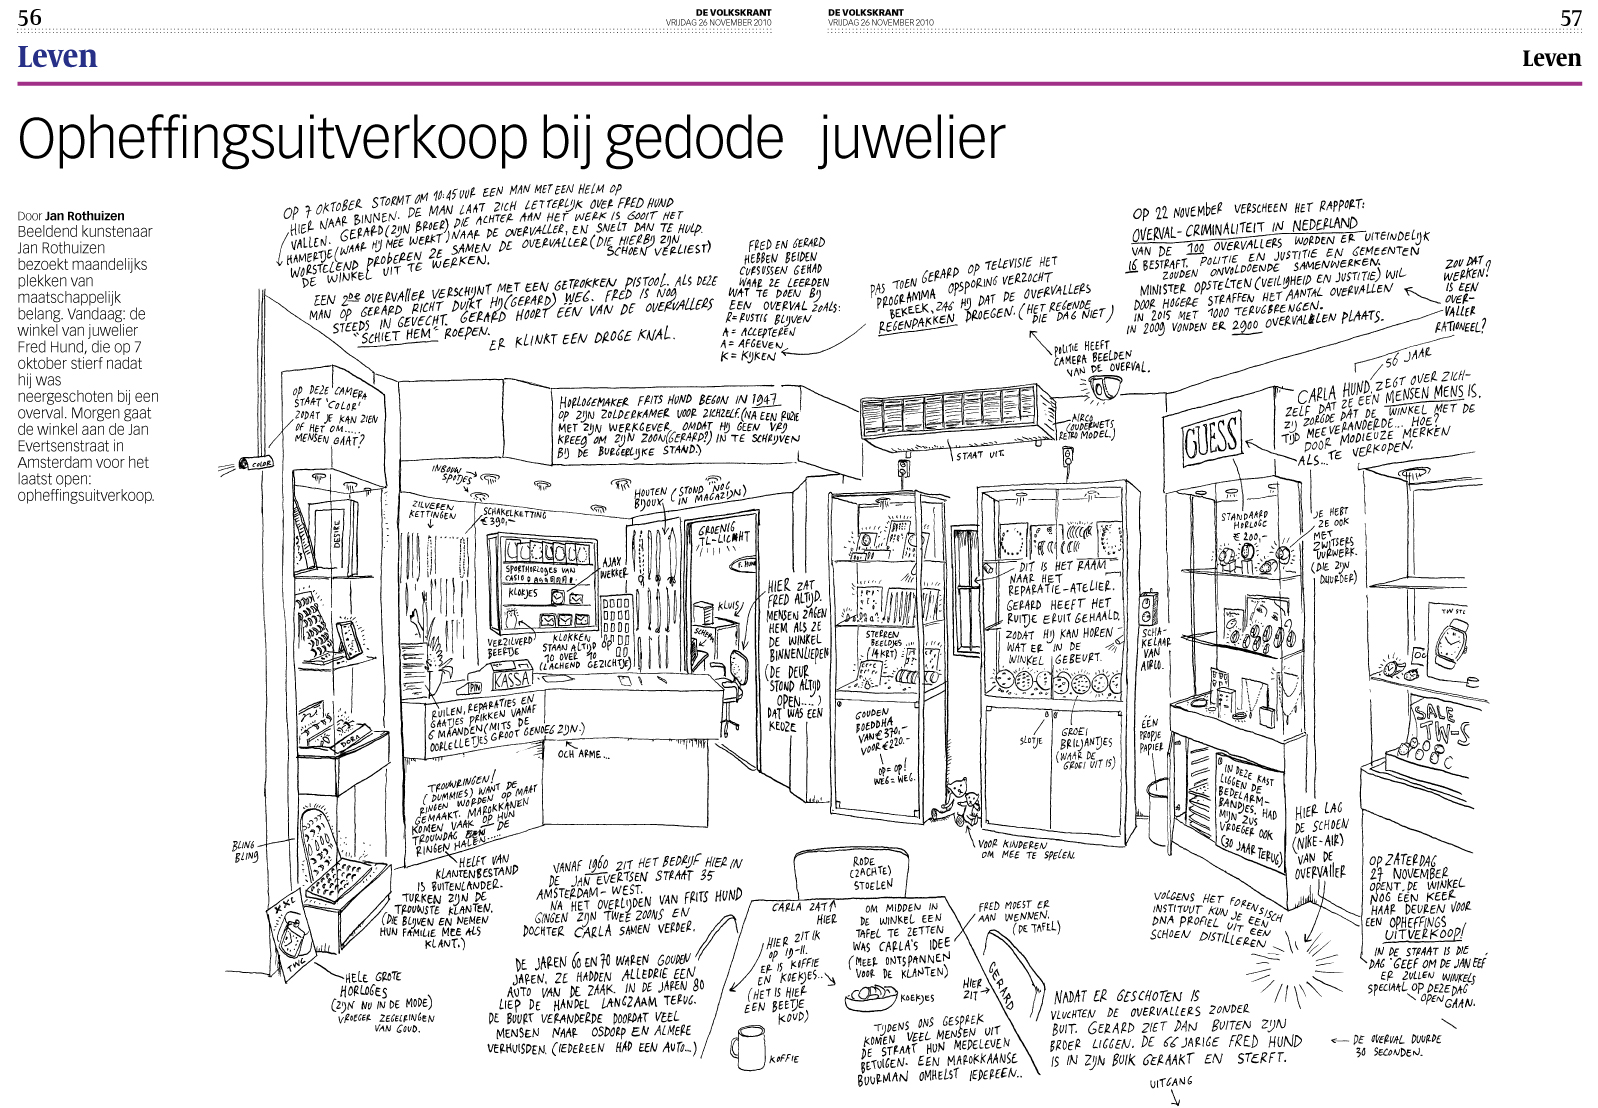 56
DE VOLKSKRANT
VRIJDAG 26 NOVEMBER 2010
DE VOLKSKRANT
VRIJDAG 26 NOVEMBER 2010
57
Leven
Leven
Opheffingsuitverkoop bij gedode juwelier
Door Jan Rothuizen
Beeldend kunstenaar
Jan Rothuizen
bezoekt maandelijks
plekken van
maatschappelijk
belang. Vandaag: de
winkel van juwelier
Fred Hund, die op 7
oktober stierf nadat
hij was
neergeschoten bij een
overval. Morgen gaat
de winkel aan de Jan
Evertsenstraat in
Amsterdam voor het
laatst open:
opheffingsuitverkoop.
OP 7 OKTOBER STORMT OM 10:45 UUR EEN MAN MET EEN HELM OP
HIER NAAR BINNEN. DE MAN LAAT ZICH LETTERLIJK OVER FRED HUND
VALLEN. GERARD (ZIJN BROER) DIE ACHTER AAN HET WERK IS GOOIT HET
HAMERTJE (WAAR HIJ MEE WERKT) NAAR DE OVERVALLER, EN SNELT DAN TE HULP.
WORSTELEND PROBEREN ZE SAMEN DE OVERVALLER (DIE HIERBIJ ZIJN
SCHOEN VERLIEST)
DE WINKEL UIT TE WERKEN.
EEN 2DE OVERVALLER VERSCHIJNT MET EEN GETROKKEN PISTOOL. ALS DEZE
MAN OP GERARD RICHT DUIKT HIJ (GERARD) WEG. FRED IS NOG
STEEDS IN GEVECHT. GERARD HOORT EEN VAN DE OVERVALLERS
"SCHIET HEM" ROEPEN.
ER KLINKT EEN DROGE KNAL.
FRED EN GERARD
HEBBEN BEIDEN
CURSUSSEN GEHAD
WAAR ZE LEERDEN
WAT TE DOEN BIJ
EEN OVERVAL ZOALS:
R= RUSTIG BLIJVEN
A= ACCEPTEREN
A= AFGEVEN
K= KIJKEN
PAS TOEN GERARD OP TELEVISIE HET
PROGRAMMA OPSPORING VERZOCHT
BEKEEK, ZAG HIJ DAT DE OVERVALLERS
REGENPAKKEN DROEGEN. (HET REGENDE
DIE DAG NIET)
POLITIE HEEFT
CAMERA BEELDEN
VAN DE OVERVAL.
OP 22 NOVEMBER VERSCHEEN HET RAPPORT:
OVERVAL-CRIMINALITEIT IN NEDERLAND
VAN DE 100 OVERVALLERS WORDEN ER UITEINDELIJK
16 BESTRAFT. POLITIE EN JUSTITIE EN GEMEENTEN
ZOUDEN ONVOLDOENDE SAMENWERKEN.
MINISTER OPSTELTEN (VEILIGHEID EN JUSTITIE) WIL
DOOR HOGERE STRAFFEN HET AANTAL OVERVALLEN
IN 2015 MET 1000 TERUGBRENGEN.
IN 2009 VONDEN ER 2900 OVERVALLEN PLAATS.
ZOU DAT
WERKEN?
IS EEN
OVER-
VALLER
RATIONEEL?
56 JAAR
CARLA HUND ZEGT OVER ZICH-
ZELF DAT ZE EEN MENSEN MENS IS.
ZIJ ZORGDE DAT DE WINKEL MET DE
TIJD MEEVERANDERDE... HOE?
DOOR MODIEUZE MERKEN
ALS... TE VERKOPEN.
OP DEZE CAMERA
STAAT 'COLOR'
ZODAT JE KAN ZIEN
OF HET OM.....
MENSEN GAAT?
COLOR
HORLOGEMAKER FRITS HUND BEGON IN 1947
OP ZIJN ZOLDERKAMER VOOR ZICHZELF. (NA EEN RUZIE
MET ZIJN WERKGEVER, OMDAT HIJ GEEN VRIJ
KREEG OM ZIJN ZOON (GERARD!) IN TE SCHRIJVEN
BIJ DE BURGERLIJKE STAND.)
AIRCO
(OUDERWETS
RETRO MODEL)
STAAT UIT.
GUESS
INBOUW
SPOTJES
ZILVEREN
KETTINGEN
SCHAKELKETTING
€ 390,-
HOUTEN (STOND NOG
BIJOUX IN MAGAZIJN)
GROENIG
TL-LICHT
F. HUND
DESIRE
SPORTHORLOGES VAN
CASIO
KLOKJES
AJAX
WEKKER
VERZILVERD
BEERTJE
KLOKKEN
STAAN ALTIJD OP
10 OVER 10
(LACHEND GEZICHTJE)
KLUIS
SCHERM
PIN
KASSA
RUILEN, REPARATIES EN
GAATJES PRIKKEN VANAF
6 MAANDEN (MITS DE
OORLELLETJES GROOT GENOEG ZIJN.)
OCH ARME...
HIER ZAT
FRED ALTIJD.
MENSEN ZAGEN
HEM ALS ZE
DE WINKEL
BINNENLIEPEN
(DE DEUR
STOND ALTIJD
OPEN....)
DAT WAS EEN
KEUZE
STERREN
BEELDJES
(14 KRT)
GOUDEN
BOEDDHA
VAN € 370,-
VOOR € 220.-
OP = OP!
WEG = WEG.
DIT IS HET RAAM
NAAR HET
REPARATIE-ATELIER.
GERARD HEEFT HET
RUITJE ERUIT GEHAALD.
ZODAT HIJ KAN HOREN
WAT ER IN DE
WINKEL GEBEURT.
SLOTJE
GROEI
BRILJANTJES
(WAAR DE
GROEI UIT IS)
SCHA-
KELAAR
VAN
AIRCO.
ÉÉN
PROPJE
PAPIER
STANDAARD
HORLOGE
€ 200,-
JE HEBT
ZE OOK
MET
ZWITSERS
UURWERK.
(DIE ZIJN
DUURDER)
TW STE
SALE
TW-S
DORA
IN DEZE KAST
LIGGEN DE
BEDELARM-
BANDJES. HAD
MIJN ZUS
VROEGER OOK
(30 JAAR TERUG)
HIER LAG
DE SCHOEN
(NIKE-AIR)
VAN DE
OVERVALLER
TROUWRINGEN!
(DUMMIES) WANT DE
RINGEN WORDEN OP MAAT
GEMAAKT. MAROKKANEN
KOMEN VAAK OP HUN
TROUWDAG DE
RINGEN HALEN....
BLING
BLING
HELFT VAN
KLANTENBESTAND
IS BUITENLANDER.
TURKEN ZIJN DE
TROUWSTE KLANTEN.
(DIE BLIJVEN EN NEMEN
HUN FAMILIE MEE ALS
KLANT.)
XXL
TWC
HELE GROTE
HORLOGES
(ZIJN NU IN DE MODE)
VROEGER ZEGELRINGEN
VAN GOUD.
VANAF 1960 ZIT HET BEDRIJF HIER IN
DE JAN EVERTSEN STRAAT 35
AMSTERDAM-WEST.
NA HET OVERLIJDEN VAN FRITS HUND
GINGEN ZIJN TWEE ZOONS EN
DOCHTER CARLA SAMEN VERDER.
DE JAREN 60 EN 70 WAREN GOUDEN
JAREN. ZE HADDEN ALLEDRIE EEN
AUTO VAN DE ZAAK. IN DE JAREN 80
LIEP DE HANDEL LANGZAAM TERUG.
DE BUURT VERANDERDE DOORDAT VEEL
MENSEN NAAR OSDORP EN ALMERE
VERHUISDEN. (IEDEREEN HAD EEN AUTO...)
VOOR KINDEREN
OM MEE TE SPELEN.
RODE
(ZACHTE)
STOELEN
CARLA ZAT
HIER
HIER ZIT IK
OP 19-11.
ER IS KOFFIE
EN KOEKJES..
(HET IS HIER
EEN BEETJE
KOUD)
KOFFIE
OM MIDDEN IN
DE WINKEL EEN
TAFEL TE ZETTEN
WAS CARLA'S IDEE
(MEER ONTSPANNEN
VOOR DE KLANTEN)
KOEKJES
FRED MOEST ER
AAN WENNEN.
(DE TAFEL)
HIER
ZIT
GERARD
TIJDENS ONS GESPREK
KOMEN VEEL MENSEN UIT
DE STRAAT HUN MEDELEVEN
BETUIGEN. EEN MAROKKAANSE
BUURMAN OMHELST IEDEREEN..
VOLGENS HET FORENSISCH
INSTITUUT KUN JE EEN
DNA PROFIEL UIT EEN
SCHOEN DISTILLEREN
NADAT ER GESCHOTEN IS
VLUCHTEN DE OVERVALLERS ZONDER
BUIT. GERARD ZIET DAN BUITEN ZIJN
BROER LIGGEN. DE 66 JARIGE FRED HUND
IS IN ZIJN BUIK GERAAKT EN STERFT.
DE OVERVAL DUURDE
30 SECONDEN.
UITGANG
OP ZATERDAG
27 NOVEMBER
OPENT DE WINKEL
NOG EEN KEER
HAAR DEUREN VOOR
EEN OPHEFFINGS
UITVERKOOP!
IN DE STRAAT IS DIE
DAG "GEEF OM DE JAN EEF
ER ZULLEN WINKELS
SPECIAAL OP DEZE DAG
OPEN GAAN.